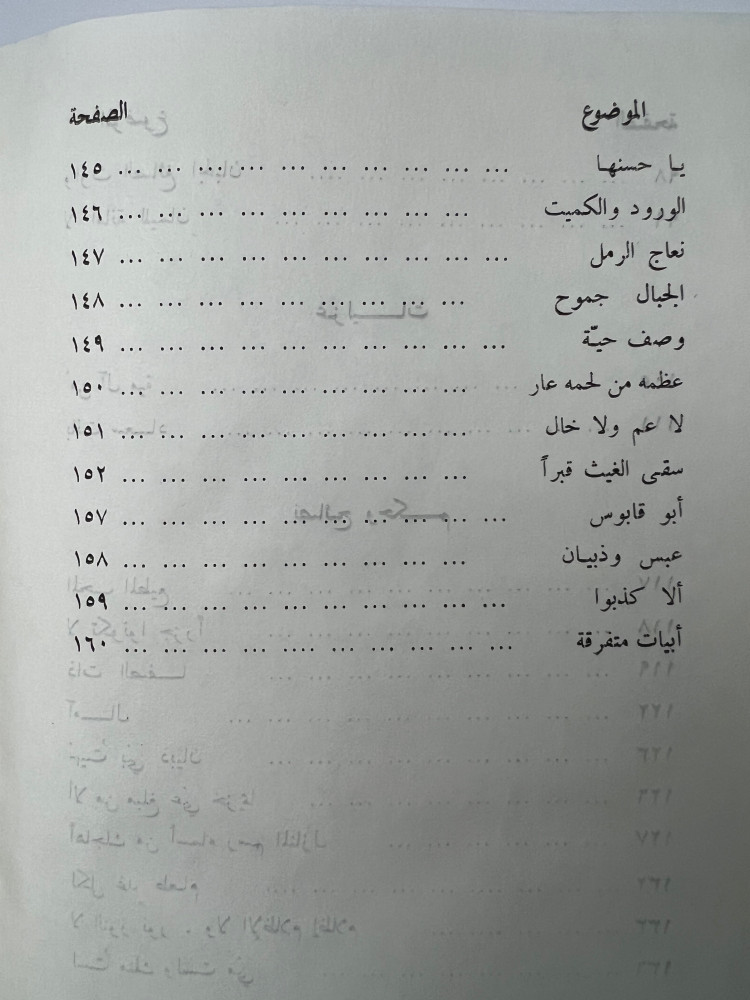 الموضوع الصفحة
يا حسنها ... ... ... ... ... ... ... ... ... ... ١٤٥
الورود والكميت ... ... ... ... ... ... ... ... ... ١٤٦
نعاج الرمل ... ... ... ... ... ... ... ... ... ... ١٤٧
الجبال جموح ... ... ... ... ... ... ... ... ... ١٤٨
وصف حيّة ... ... ... ... ... ... ... ... ... ... ١٤٩
عظمه من لحمه عار ... ... ... ... ... ... ... ... ... ١٥٠
لا عم ولا خال ... ... ... ... ... ... ... ... ... ١٥١
سقى الغيث قبراً ... ... ... ... ... ... ... ... ... ١٥٢
أبو قابوس ... ... ... ... ... ... ... ... ... ... ١٥٧
عبس وذبيان ... ... ... ... ... ... ... ... ... ١٥٨
ألا كذبوا ... ... ... ... ... ... ... ... ... ... ١٥٩
أبيات متفرقة ... ... ... ... ... ... ... ... ... ... ١٦٠